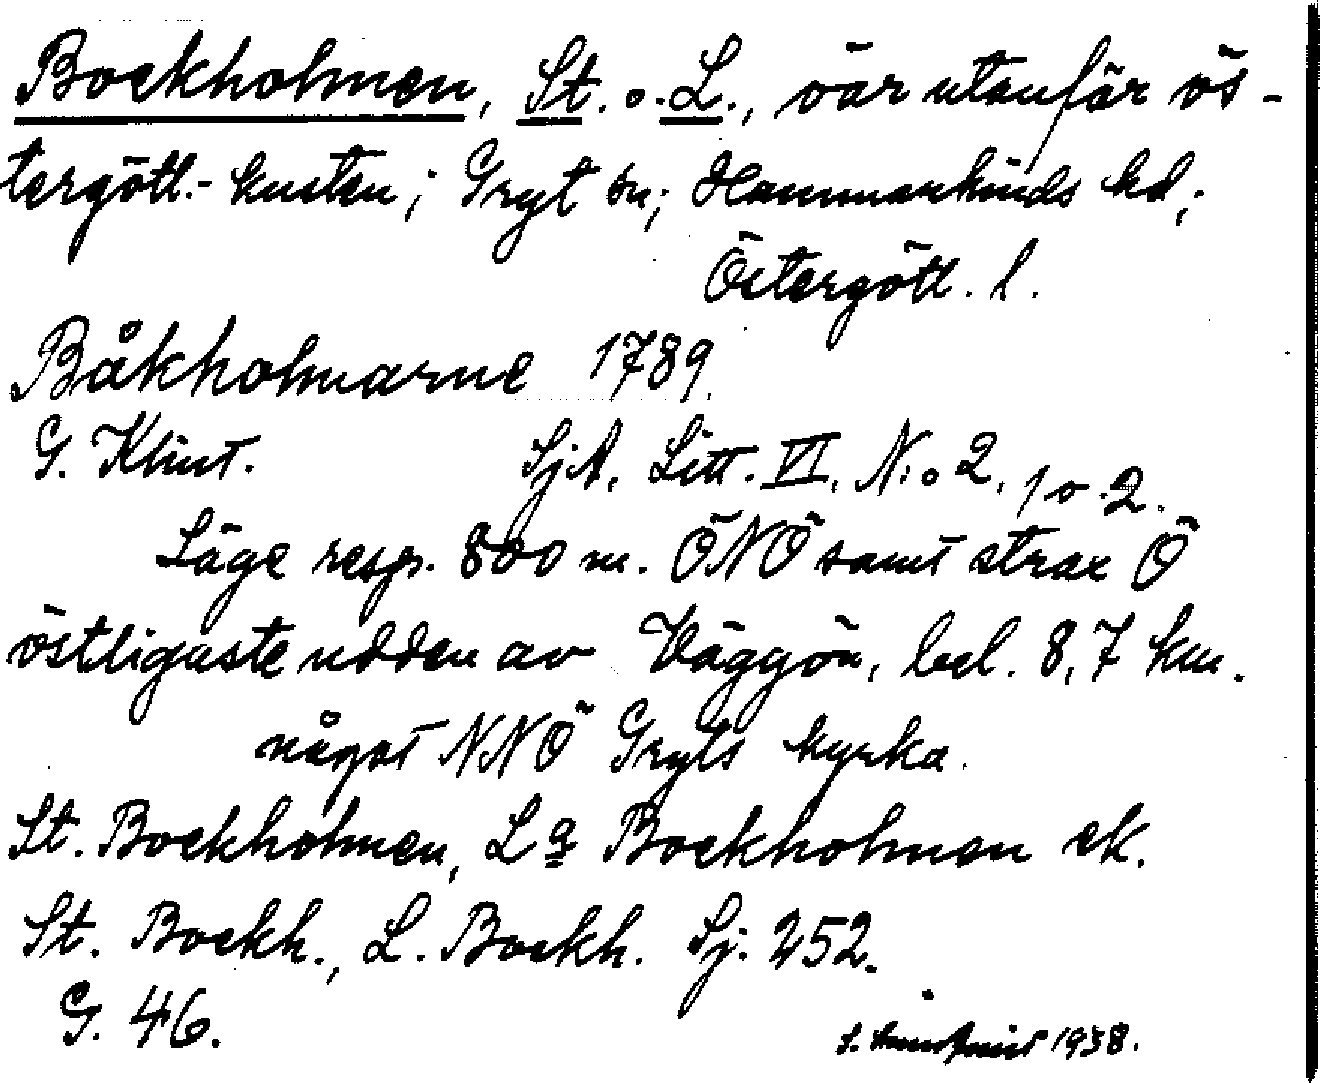 Bockholmen, St. o. L., öar utanför ös-
tergötl.- kusten; Gryt sn; Hammarkinds hd;
Östergötl. l.
Båkholmarne 1789.
G. Klint. SjA, Litt. VI, N:o 2, 1 o 2.
Läge resp. 800 m. ÖNÖ samt strax Ö
östligaste udden av Väggön, bel. 8,7 km.
något NNÖ Gryts kyrka.
St. Bockholmen, La Bockholmen ek.
St. Bockh., L. Bockh. Sj. 252.
G. 46.
1938.